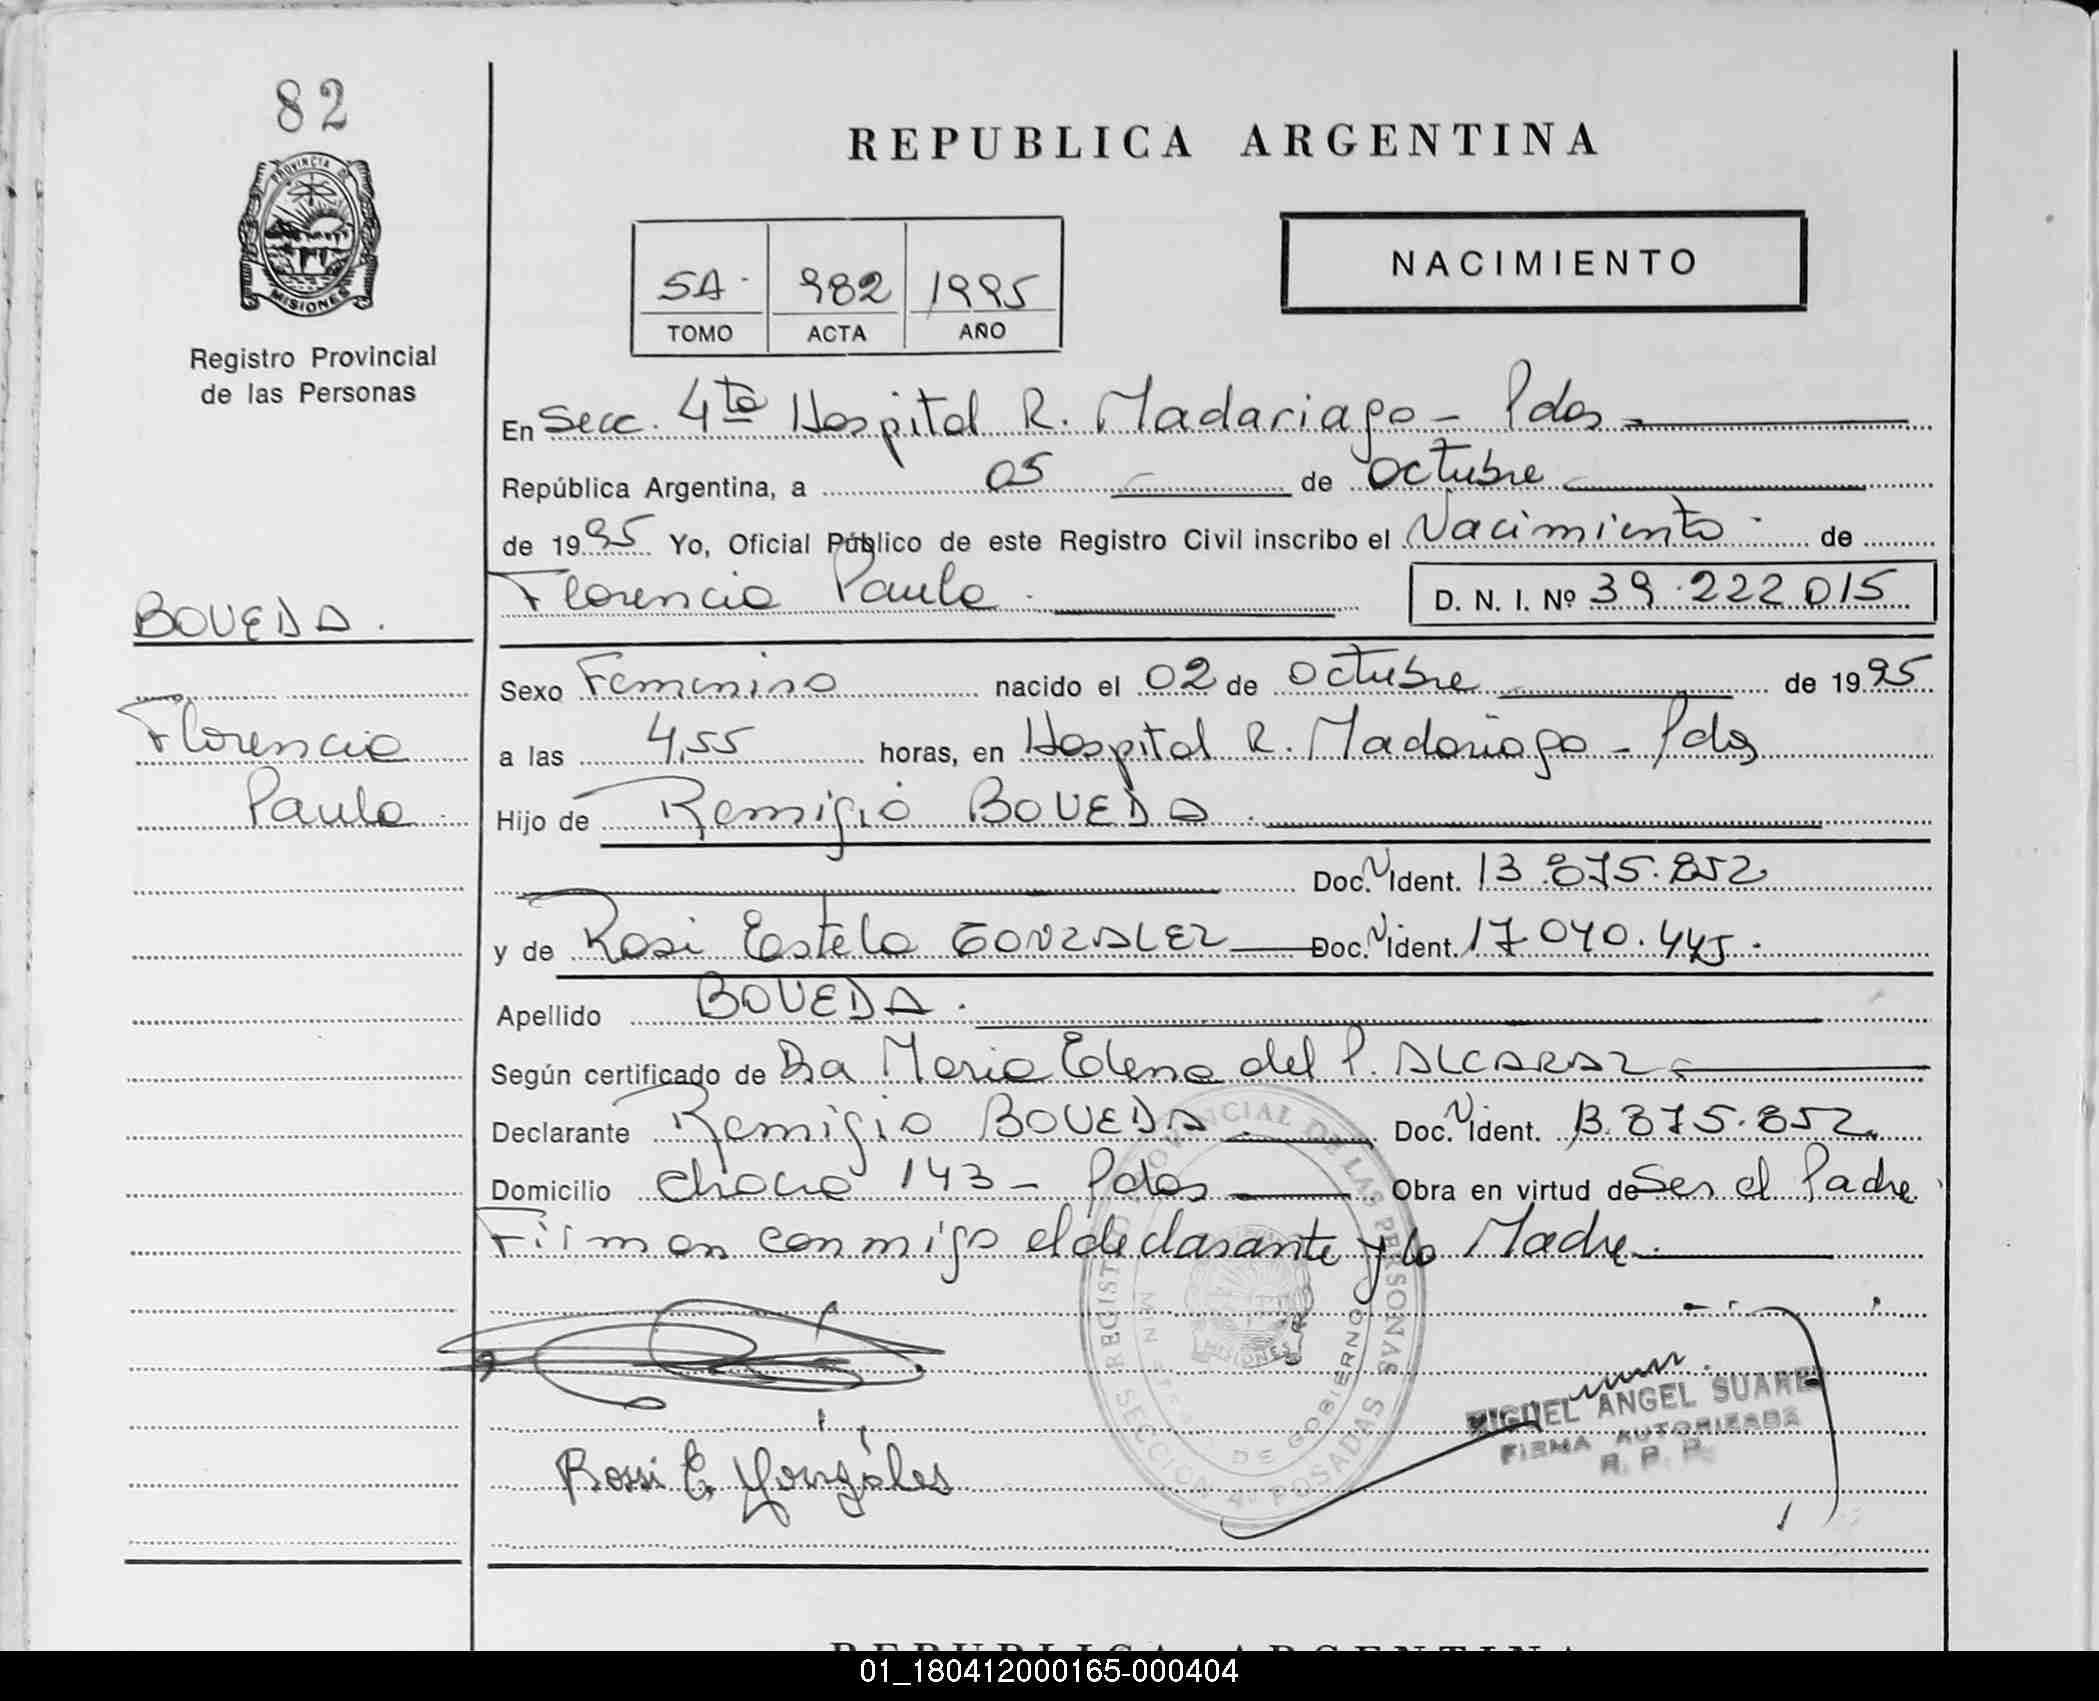 82
PROVINCIA DE
MISIONES
Registro Provincial
de las Personas
REPUBLICA ARGENTINA
SA. 982 1995
TOMO ACTA AÑO
NACIMIENTO
En Secc. 4ta Hospital R. Madariaga - Pdas
República Argentina, a 05 de Octubre
de 1995 Yo, Oficial Público de este Registro Civil inscribo el Nacimiento. de
Florencia Paula. D. N. I. Nº 39.222.015
BOVEDA.
Florencia
Paula.
Sexo Femenino nacido el 02 de Octubre de 1995
a las 4,55 horas, en Hospital R. Madariaga - Pdas
Hijo de Remigio BOVEDA.
Doc. N Ident. 13.875.852
y de Rosi Estela GONZALEZ Doc. N Ident. 17.040.445.
Apellido BOVEDA.
Según certificado de Dra Maria Elena del P. ALCARAZ
Declarante Remigio BOVEDA. Doc. N Ident. 13.875.852.
Domicilio Chaco 143 - Pdas Obra en virtud de Ser el Padre.
Firman conmigo el declarante y la Madre.
REGISTRO PROVINCIAL DE LAS PERSONAS
MINISTERIO DE GOBIERNO
MISIONES
SECCION 4ta POSADAS
Rossi E. Gonzáles
MIGUEL ANGEL SUAREZ
FIRMA AUTORIZADA
R. P. P.
REPUBLICA ARGENTINA
01_180412000165-000404